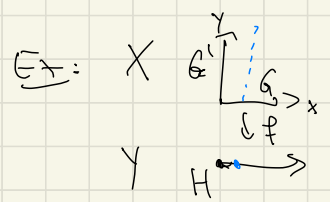 Ex: X G' Y
G x
↓ f
Y H